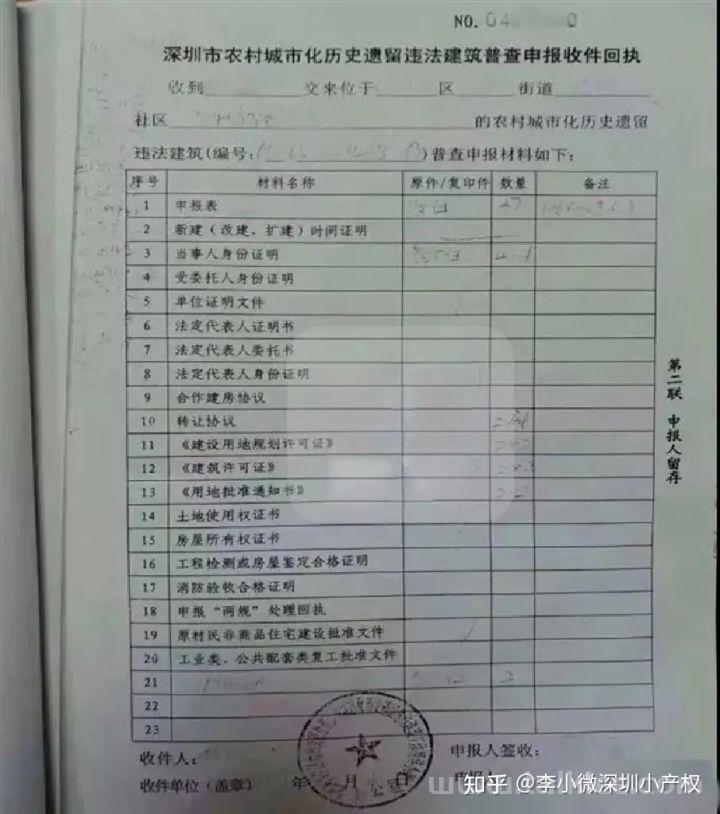 NO. 04
深圳市农村城市化历史遗留违法建筑普查申报收件回执
收到 交来位于 区 街道
社区 的农村城市化历史遗留
违法建筑(编号: )普查申报材料如下:
序号 材料名称 原件/复印件 数量 备注
1 申报表 27
2 新建(改建、扩建)时间证明
3 当事人身份证明
4 受委托人身份证明
5 单位证明文件
6 法定代表人证明书
7 法定代表人委托书
8 法定代表人身份证明
9 合作建房协议
10 转让协议
11 《建设用地规划许可证》
12 《建筑许可证》
13 《用地批准通知书》
14 土地使用权证书
15 房屋所有权证书
16 工程检测或房屋鉴定合格证明
17 消防验收合格证明
18 申报“两规”处理回执
19 原村民非商品住宅建设批准文件
20 工业类、公共配套类复工批准文件
21
22
23
第二联 申报人留存
收件人: 申报人签收:
收件单位(盖章) 年 月
知乎 @李小微深圳小产权